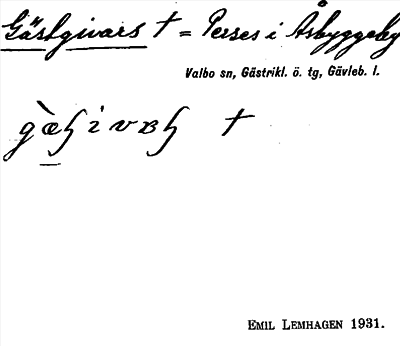 Gästgivars † = Perses i Åsbyggeby
Valbo sn, Gästrikl. ö. tg, Gävleb. l.
†
EMIL LEMHAGEN 1931.